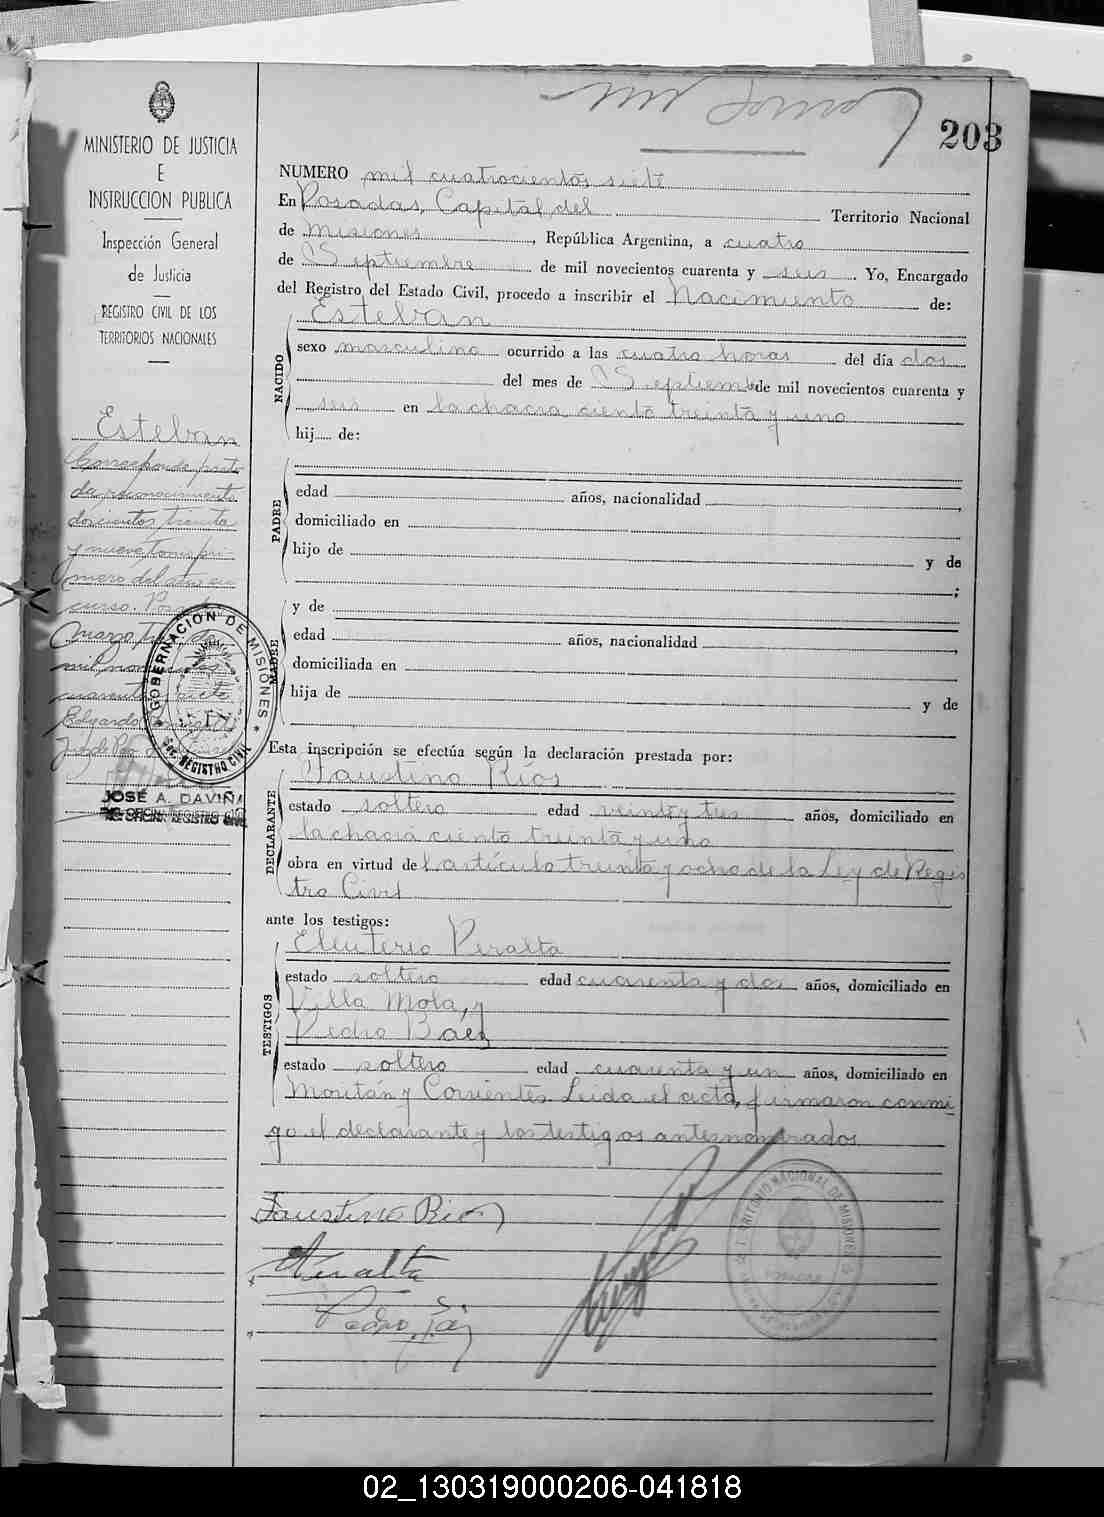 203
MINISTERIO DE JUSTICIA
E
INSTRUCCION PUBLICA
Inspección General
de Justicia
REGISTRO CIVIL DE LOS
TERRITORIOS NACIONALES
NUMERO mil cuatrocientos siete
En Posadas, Capital del Territorio Nacional
de Misiones, República Argentina, a cuatro
de Septiembre de mil novecientos cuarenta y seis. Yo, Encargado
del Registro del Estado Civil, procedo a inscribir el Nacimiento de:
Esteban
NACIDO
sexo masculino ocurrido a las cuatro horas del día dos
del mes de Septiembre de mil novecientos cuarenta y
seis en la chacra ciento treinta y uno
hij..... de:
PADRE
edad años, nacionalidad ,
domiciliado en
hijo de y de
;
MADRE
y de
edad años, nacionalidad ,
domiciliada en
hija de y de
Esta inscripción se efectúa según la declaración prestada por:
DECLARANTE
Faustino Rios
estado soltero edad veinte y tres años, domiciliado en
la chacra ciento treinta y uno
obra en virtud del artículo treinta y ocho de la Ley de Regis
tro Civil
ante los testigos:
TESTIGOS
Eleuterio Peralta
estado soltero edad cuarenta y dos años, domiciliado en
Villa Mola, y
Pedro Baez
estado soltero edad cuarenta y un años, domiciliado en
Moritán y Corrientes. Leida el acta, firmaron conmi
go el declarante y los testigos antesnombrados.
Faustino Rios
Peralta
Pedro
Esteban
Corresponde parti
da reconocimiento
doscientos treinta
y nueve, tomo pri
mero del año en
curso.
Marzo
mil
cuarenta y siete
Edgardo
GOBERNACION DE MISIONES
REGISTRO CIVIL
JOSÉ A. DAVIÑA
TERRITORIO NACIONAL DE MISIONES
02_130319000206-041818